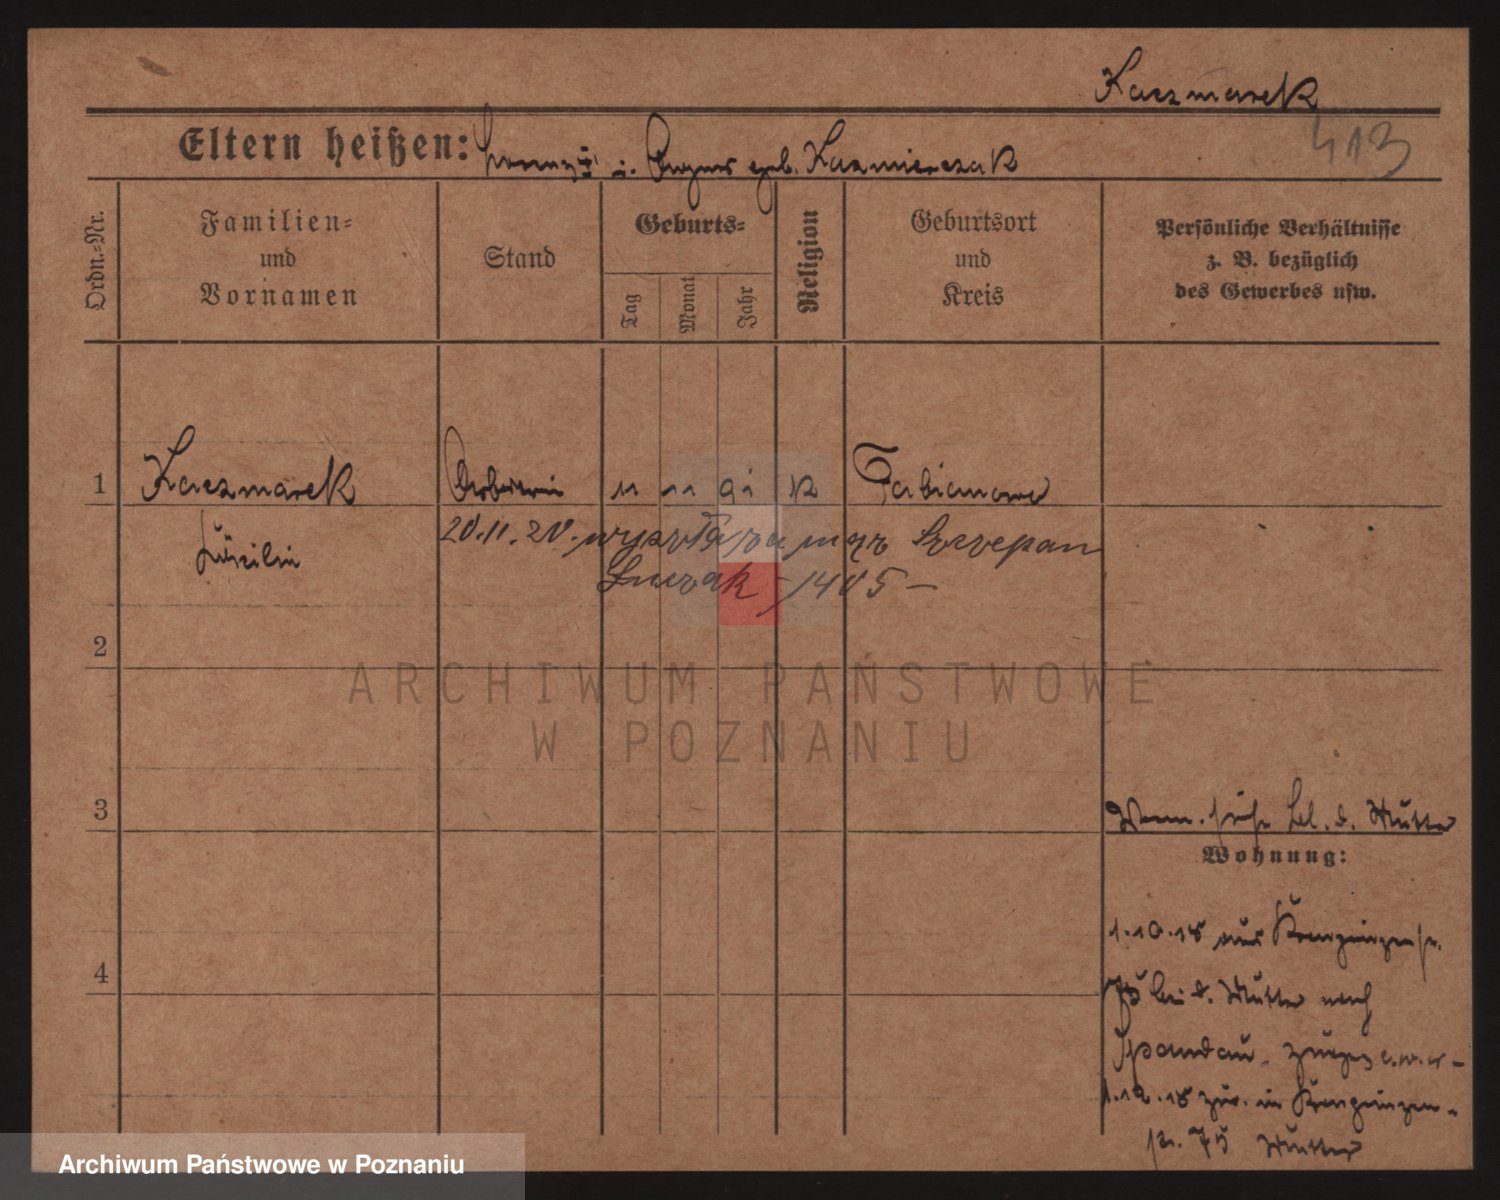 Kaczmarek
413
Eltern heißen: Lorenz u. Agnes geb. Kazmierczak
Ordn.-Nr.
Familien-
und
Vornamen
Stand
Geburts-
Tag
Monat
Jahr
Religion
Geburtsort
und
Kreis
Persönliche Verhältnisse
z. B. bezüglich
des Gewerbes usw.
1
Kaczmarek
Arbeiterin
11 11 91 K
Fabianowo
Cäcilie
20.11.20. wyszła za mąż Szczepan
Luczak - 1405 -
2
ARCHIWUM PAŃSTWOWE
W POZNANIU
3
d. Mutter
Wohnung:
4
1.10.18 aus
75 bei d. Mutter nach
Spandau
1.12.18 zur. in
75 Mutter
Archiwum Państwowe w Poznaniu